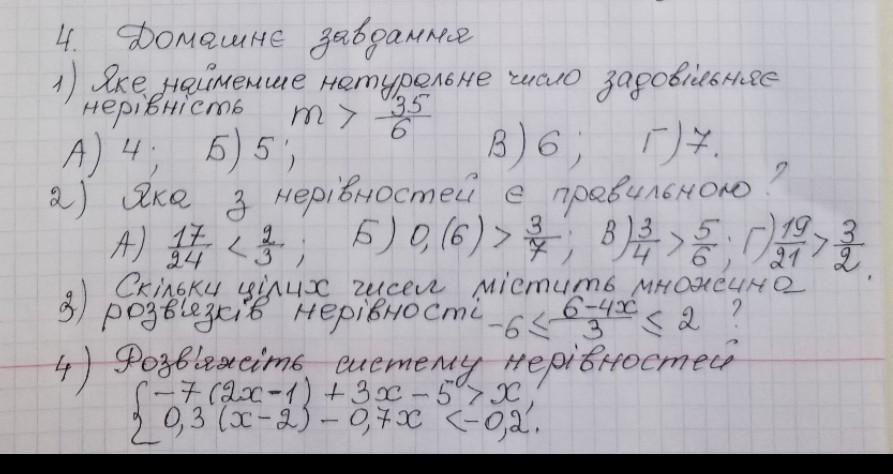 4. Домашнє завдання
1) Яке найменше натуральне число задовільняє
нерівність m > 35/6
А) 4; Б) 5; В) 6; Г) 7.
2) Яка з нерівностей є правильною?
А) 17/24 < 2/3; Б) 0,(6) > 3/7; В) 3/4 > 5/6; Г) 19/21 > 3/2.
3) Скільки цілих чисел містить множина
розв'язків нерівності -6 ≤ (6-4x)/3 ≤ 2 ?
4) Розв'яжіть систему нерівностей
{ -7(2x-1) + 3x - 5 > x,
0,3(x-2) - 0,7x < -0,2.